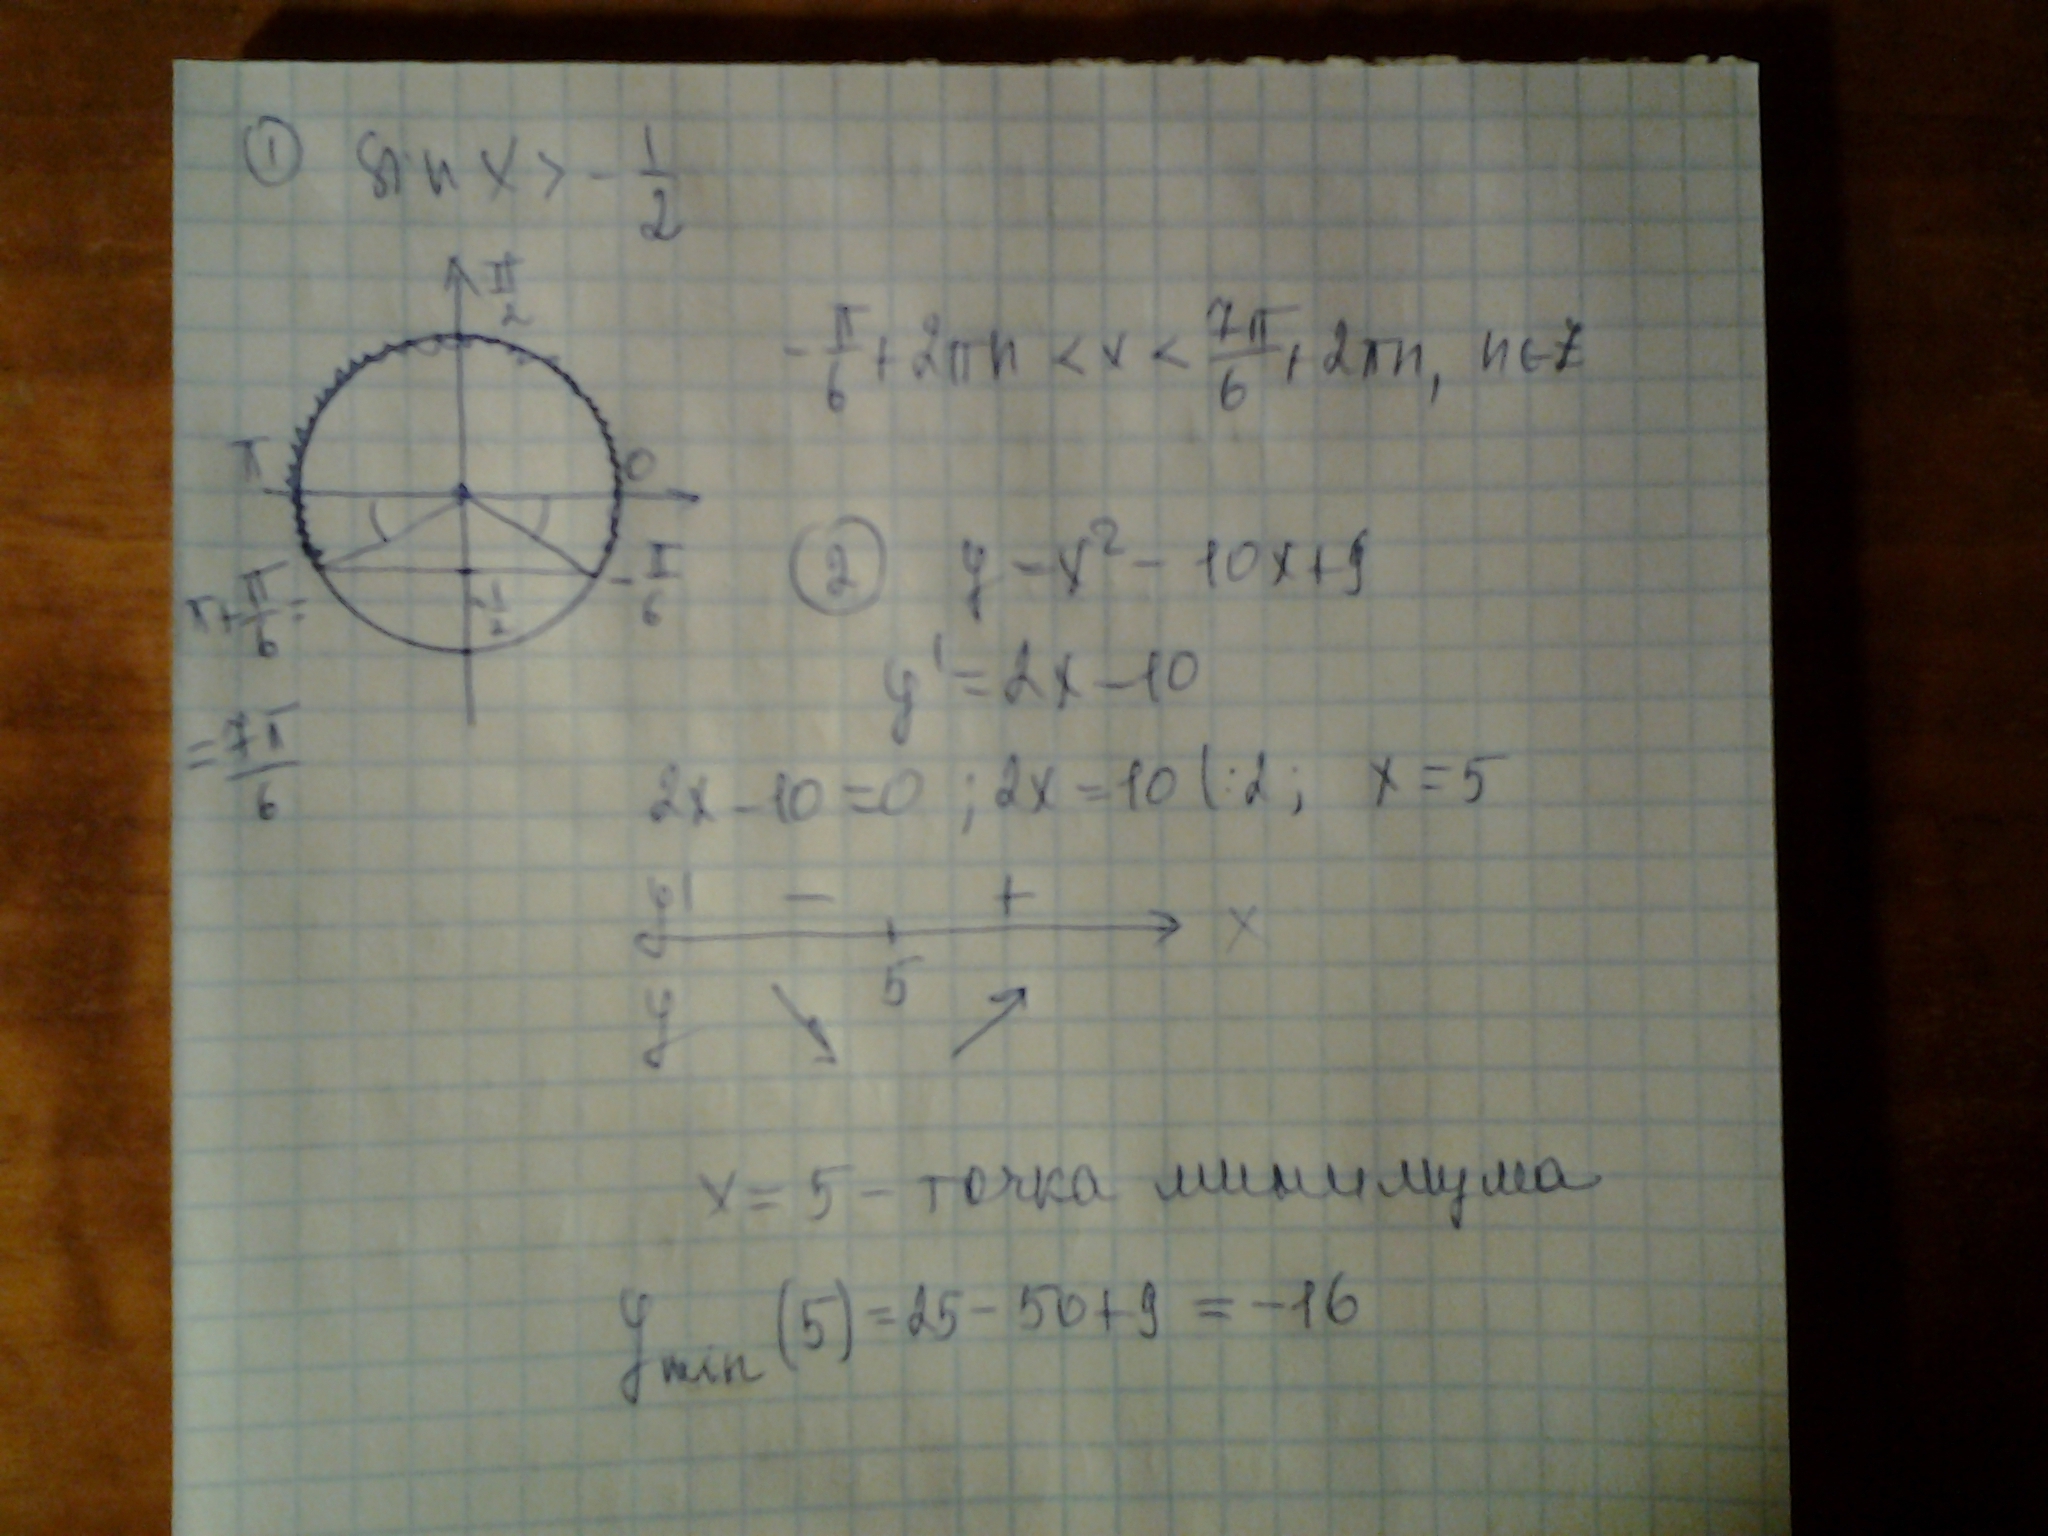 ① sin x > - 1/2
π/2
-π/6 + 2πn < x < 7π/6 + 2πn, n ∈ Z
π 0
-1/2
-π/6
π + π/6 =
= 7π/6
② y = x² - 10x + 9
y' = 2x - 10
2x - 10 = 0 ; 2x = 10 |:2 ; x = 5
y' - + x
5
y
x = 5 - точка минимума
y min (5) = 25 - 50 + 9 = -16